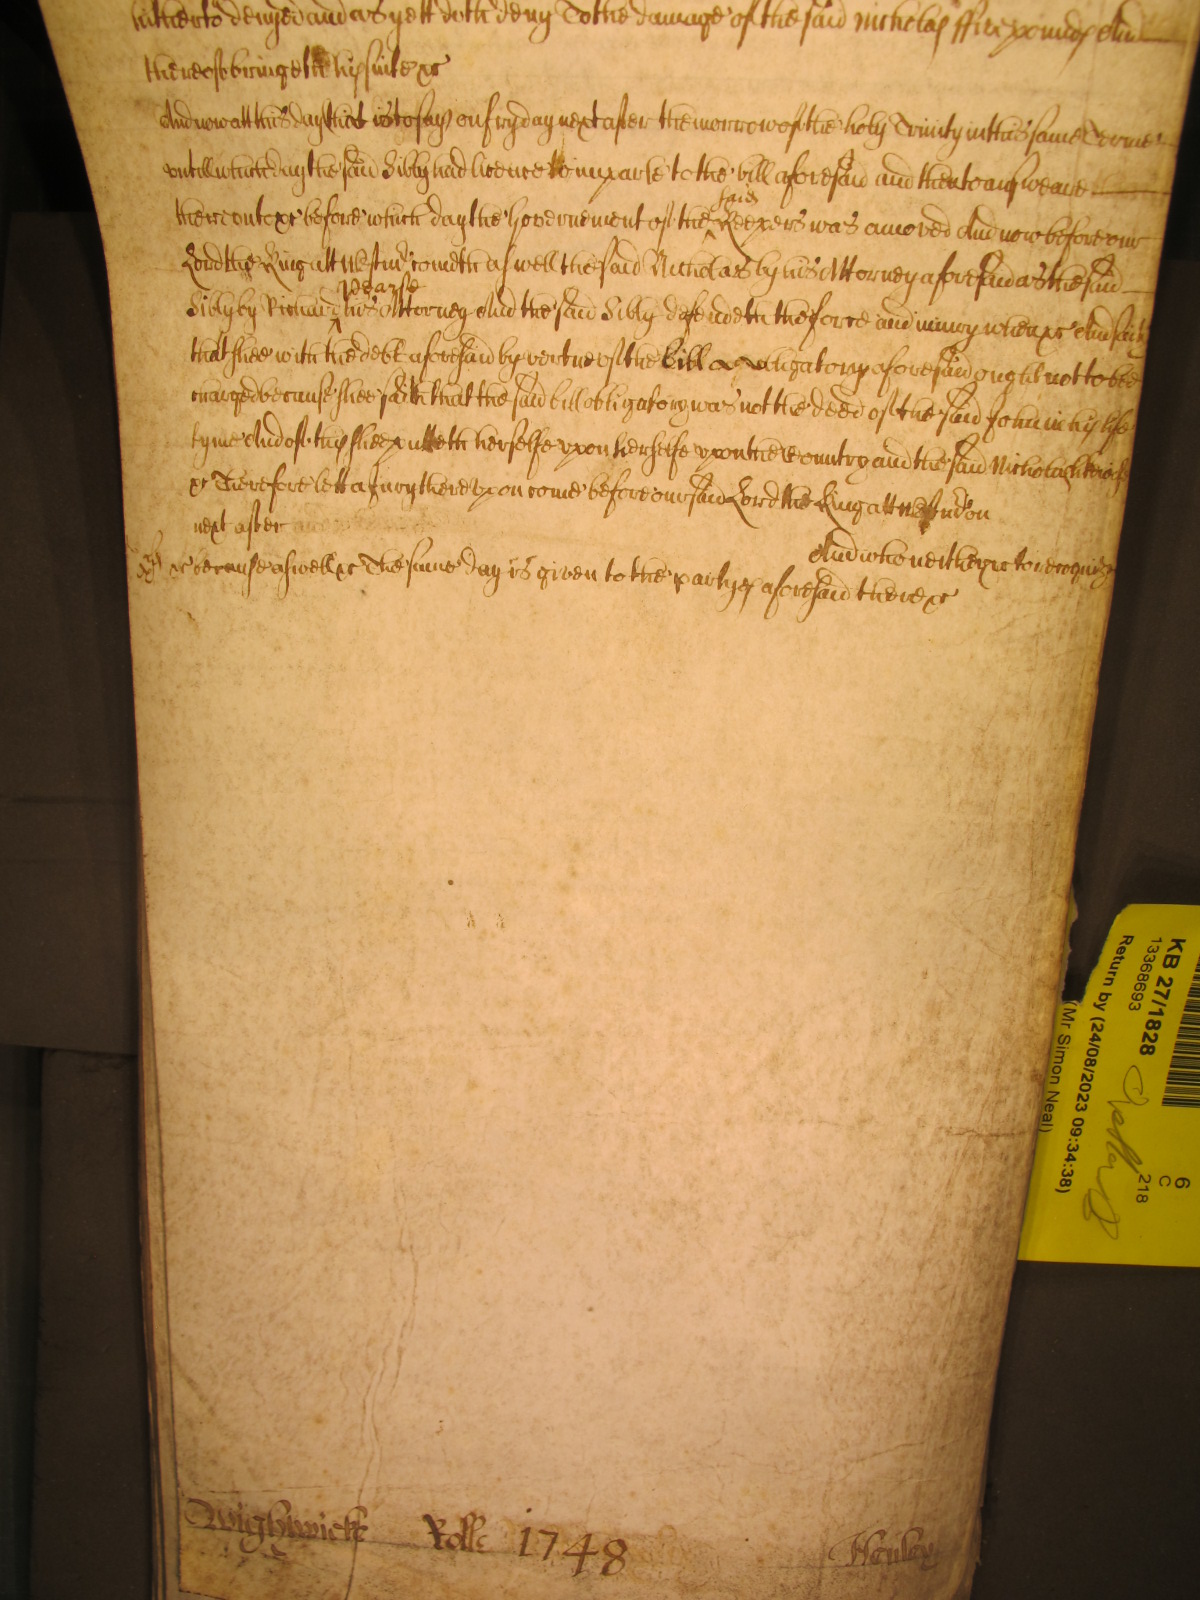 hitherto denyed and as yett doth deny To the damage of the said Nicholas ffive pounds And
thereof bringeth his suite &c
And now att this day that is to say on fryday next after the morrow of the holy Trinity in this same Terme
untill which day the said Sibly had licence to imparle to the bill aforesaid and then to answeare
thereunto &c before which day the Governement of the said Keepers was amoved And now before our
Lord the King att Westmr cometh as well the said Nicholas by his Attorney aforesaid as the said
Sibly by Richard Pearse his Attorney And the said Sibly defendeth the force and iniury when &c And saith
that shee with the debt aforesaid by vertue of the bill obligatory aforesaid ought not to bee
charged because shee saith that the said bill obligatory was not the deed of the said John in his life
tyme And of this shee putteth herselfe upon herselfe upon the Country and the said Nicholas likewise
&c Therefore lett a Jury thereupon come before our said Lord the King att Westmr on
next after
And who neither &c to recognize
&c because aswell &c The same day is given to the partyes aforesaid there &c
Wightwicke Rolle 1748 Henley
KB 27/1828
13368693
Return by (24/08/2023 09:34:38)
(Mr Simon Neal)
6
C
218